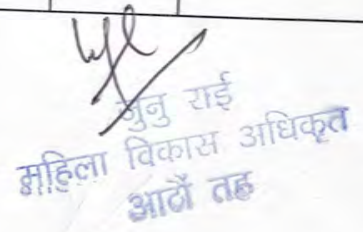 जुनु राई
महिला विकास अधिकृत
आठौं तह